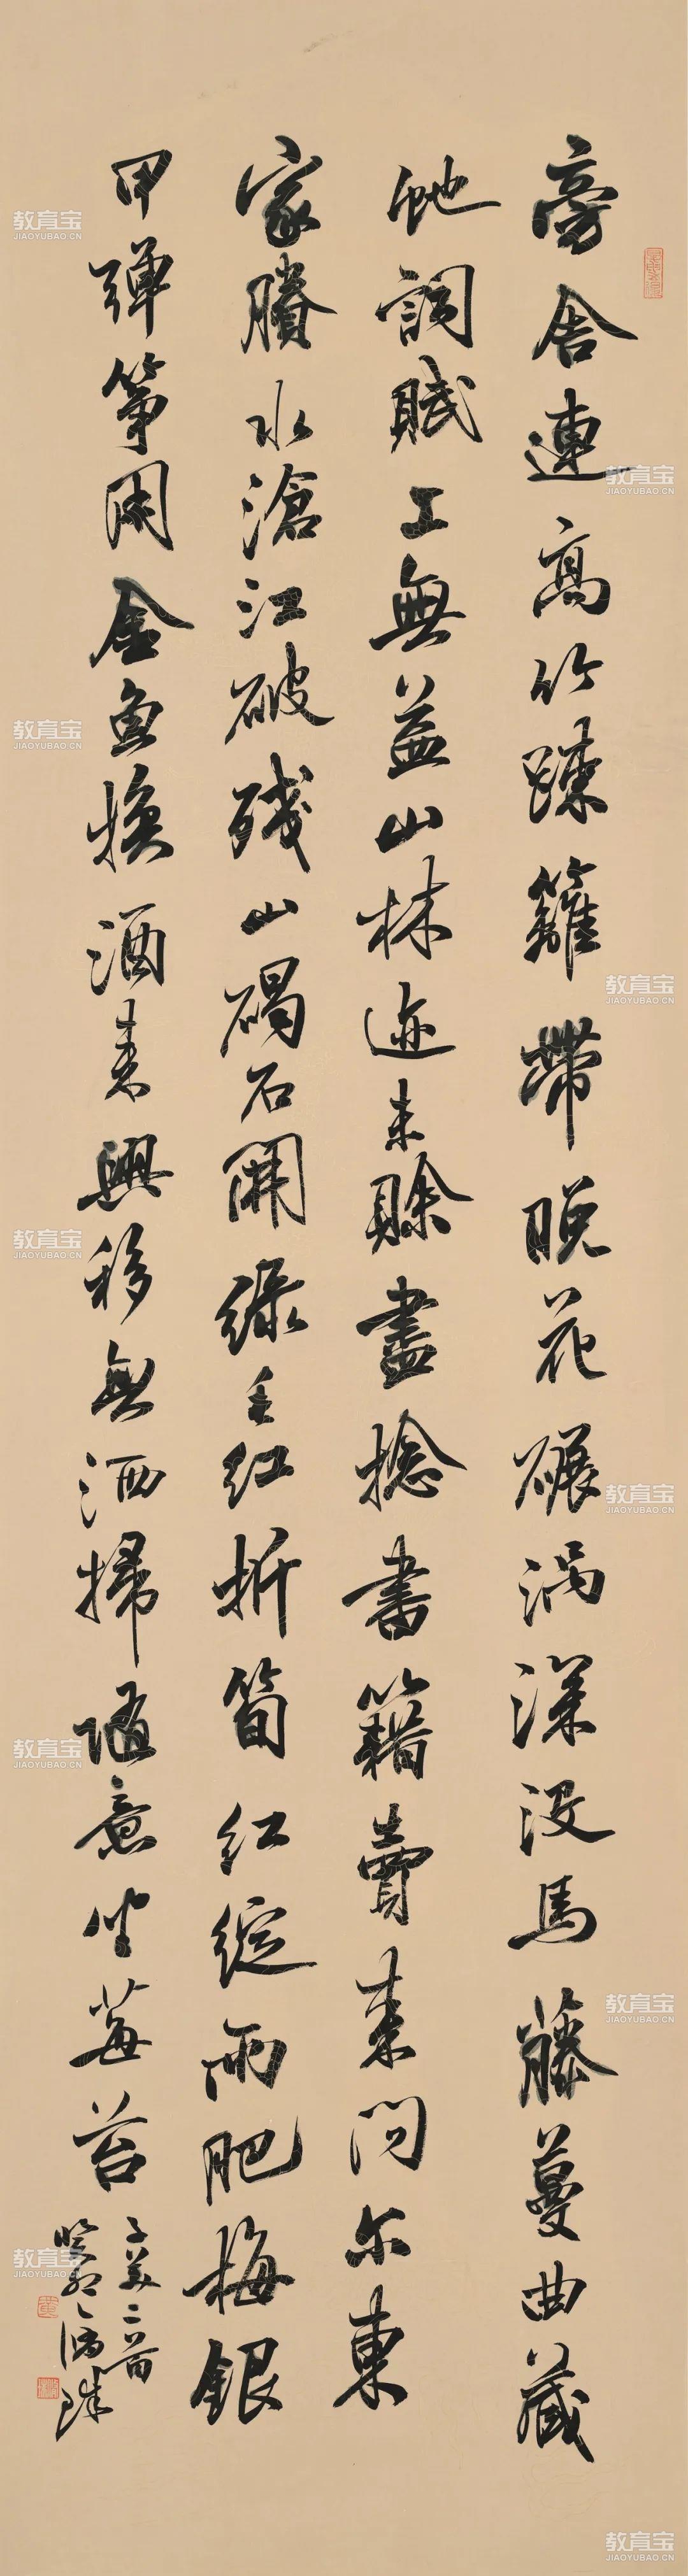 旁舍連高竹踈籬帶晚花碾渦深没馬藤蔓曲藏
虵詞賦工無益山林迹未賒盡捻書籍賣来問尔東
家賸水滄江破殘山碣石開緑垂红折筍红綻雨肥梅銀
甲彈箏用金魚換酒来興移無洒掃隨意坐莓苔
子美二首
教育宝
JIAOYUBAO.CN